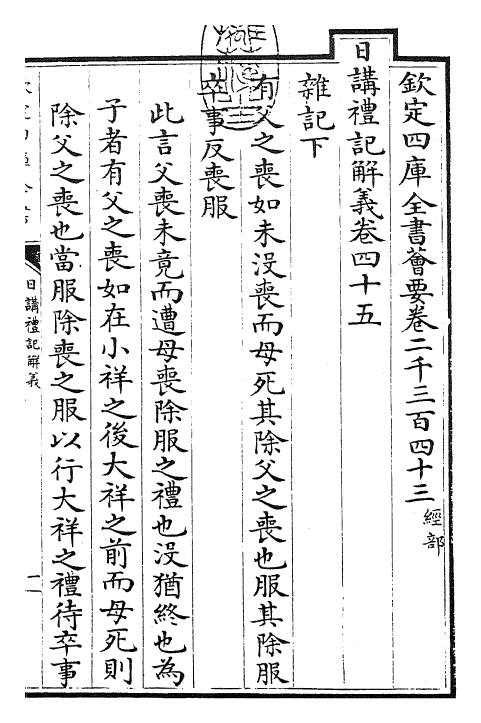 欽定四庫全書薈要卷二千三百四十三經部
日講禮記解義卷四十五
雜記下
有父之喪如未沒喪而母死其除父之喪也服其除服
卒事反喪服
此言父喪未竟而遭母喪除服之禮也沒猶終也為
子者有父之喪如在小祥之後大祥之前而母死則
除父之喪也當服除喪之服以行大祥之禮待卒事
日講禮記解義